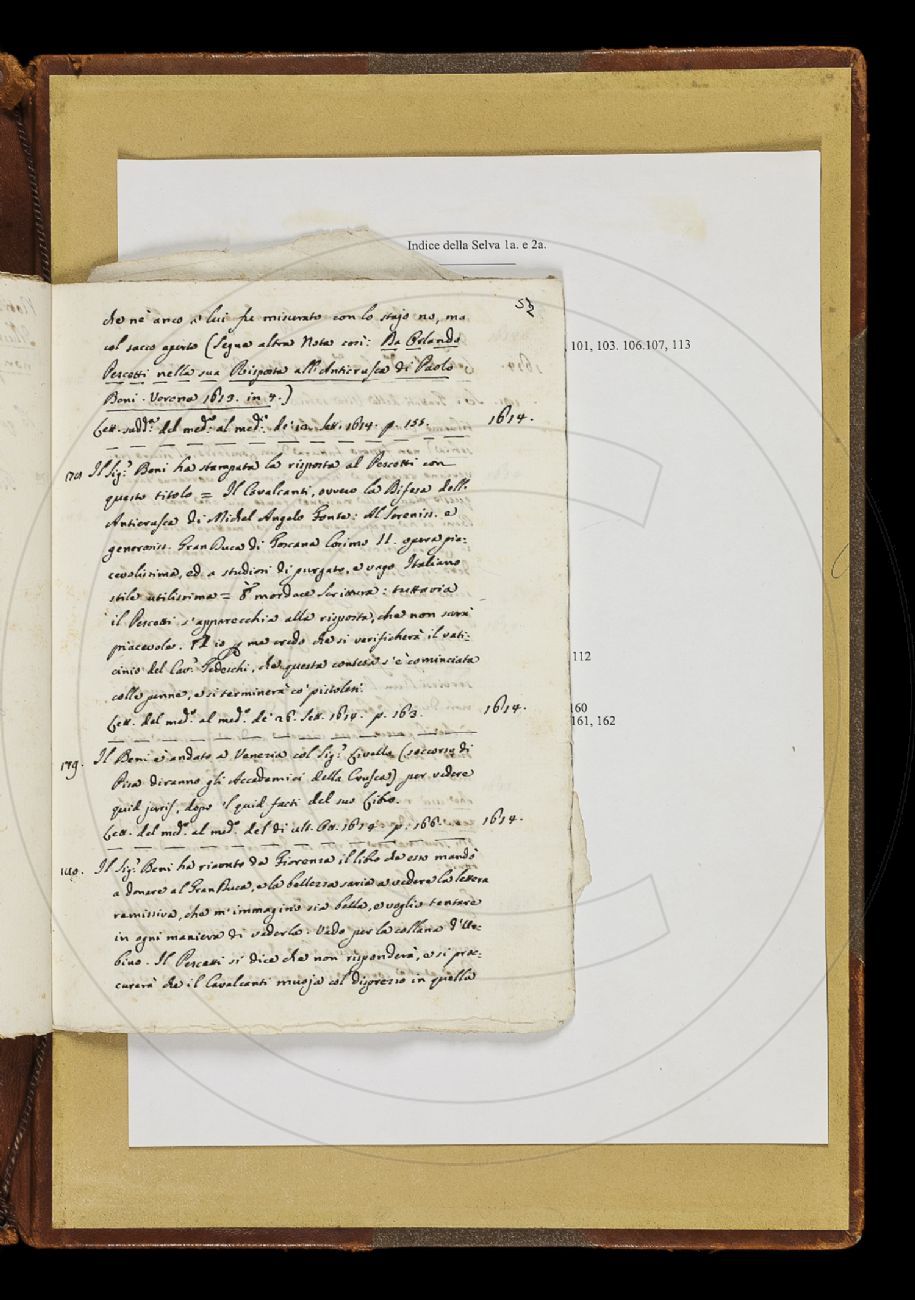 Indice della Selva 1a. e 2a.
, 101, 103. 106.107, 113
112
160
161, 162
52
che nè anco a lui fu misurato con lo stajo no, ma
col sacco aperto (Segue altra Nota così: Da Orlando
Pescetti nella sua Risposta all'Anticrusca di Paolo
Beni. Verona 1613. in 4.)
Lett. sudd.ª del med.º al med.º de' 12. Sett. 1614. p. 155. 1614.
Il Sig.r Beni ha stampata la risposta al Pescetti con
questo titolo = Il Cavalcanti, ovvero la Difesa dell'
Anticrusca di Michel Angelo Fonte: Al Sereniss. e
generosiss. Gran Duca di Toscana Cosimo II. opera pia=
cevolissima, ed a studiosi di purgato, e vago Italiano
stile utilissima = mordace scrittura: tuttavia
il Pescetti s'apparecchia alla risposta, che non sarà
piacevole. Ed io p me credo che si verificherà il vati=
cinio del Cav.r Tedeschi, che questa contesa s'è cominciata
colle penne, e si terminerà co' pistolesi.
Lett. del med.º al med.º de' 26. Sett. 1614. p. 163. 1614.
179. Il Beni è andato a Venezia col Sig.r Livello (soccorso di
Pisa diranno gli Accademici della Crusca) per vedere
quid juris, dopo il quid facti del suo Libro.
Lett. del med.º al med.º del dì ult. Ott. 1614. p. 166. 1614.
180. Il Sig.r Beni ha riavuto da Fiorenza il libro che esso mandò
a donare al Gran Duca, e la bellezza saria a vedere la lettera
remissiva, che m'immagino sia bella, e voglio tentare
in ogni maniera di vederla. Vado per la collana d'Ur=
bino. Il Pescetti si dice che non risponderà, e si proc=
curerà che il Cavalcanti muoja col disprezzo in quella